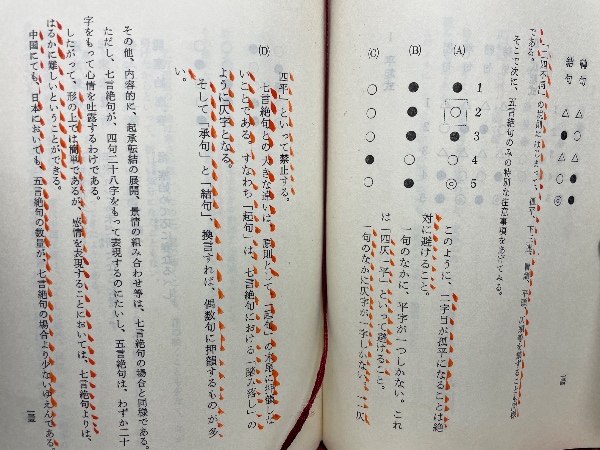 転句 △ ● △ ○ ●
結句 △ ○ △ ● ◎
である。
そこで次に、五言絶句のみの特別な注意事項をあげてみる。
1 2 3 4 5
(A) ● ○ ● ○ ◎
(B) ● ○ ● ● ●
(C) ○ ○ ○ ● ○
このように、二字目が孤平になることは絶
対に避けること。
一句のなかに、平字が一つしかない。これ
は「四仄一平」といって避けること。
一句のなかに仄字が一字しかない。「一仄
四平」といって禁止する。
(D) 七言絶句との大きな違いは、原則として、「起句」の末尾に押韻しな
いことである。すなわち「起句」は、七言絶句における「踏み落し」の
ように仄字となる。
そして「承句」と「結句」、換言すれば、偶数句に押韻するものが多
い。
その他、内容的に、起承転結の展開、景情の組み合わせ等は、七言絶句の場合と同様である。
ただし、七言絶句が、四句二十八字をもって表現するのにたいし、五言絶句は、わずか二十
字をもって心情を吐露するわけである。
したがって、形の上では簡単であるが、感情を表現することにおいては、七言絶句よりは、
はるかに難しいということができる。
中国にても、日本においても、五言絶句の数量が、七言絶句の場合より少ないゆえんである。